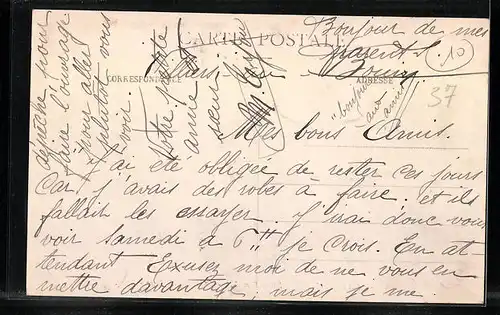 Bonjour de mes
parents
CARTE POSTALE
CORRESPONDANCE
ADRESSE
.10
37
"bonjour
aux
amis"
Mes bons Amis.
J'ai été obligée de rester ces jours
car j'avais des robes à faire, et ils
fallait les essayer. J'irai donc vous
voir Samedi à 6H je crois. En at-
tendant Exusez moi de ne vous en
mettre davantage, mais je me
dépêche pour
faire l'ouvrage
pour aller
plutôt vous
voir.
Votre petite
amie